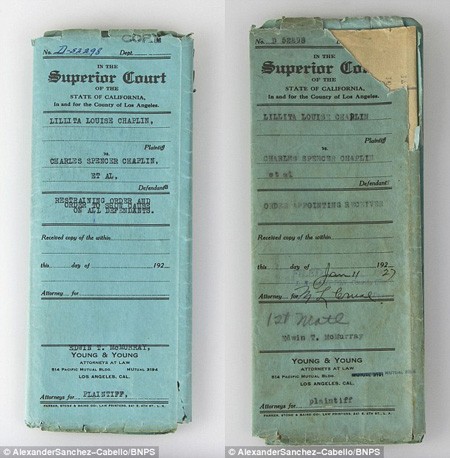 COPY
No. D-52298 Dept.
IN THE
Superior Court
OF THE
STATE OF CALIFORNIA,
In and for the County of Los Angeles.
LILLITA LOUISE CHAPLIN,
Plaintiff
vs.
CHARLES SPENCER CHAPLIN,
ET AL,
Defendant
RESTRAINING ORDER AND
ORDER TO SHOW CAUSE
ON ALL DEFENDANTS.
Received copy of the within
this day of 192
Attorney for
EDWIN T. McMURRAY,
YOUNG & YOUNG
ATTORNEYS AT LAW
514 PACIFIC MUTUAL BLDG. MUTUAL 3194
LOS ANGELES, CAL.
Attorneys for PLAINTIFF,
No. D 52298
IN THE
Superior Court
OF THE
STATE OF CALIFORNIA,
In and for the County of Los Angeles.
LILLITA LOUISE CHAPLIN
Plaintiff
vs.
CHARLES SPENCER CHAPLIN
et al
Defendant
ORDER APPOINTING RECEIVER
Received copy of the within
this day of Jan 11 1927
Attorney for
1st
Edwin T. McMurray
YOUNG & YOUNG
ATTORNEYS AT LAW
514 PACIFIC MUTUAL BLDG. MUTUAL
LOS ANGELES, CAL.
Attorneys for plaintiff
© AlexanderSanchez-Cabello/BNPS
© AlexanderSanchez-Cabello/BNPS